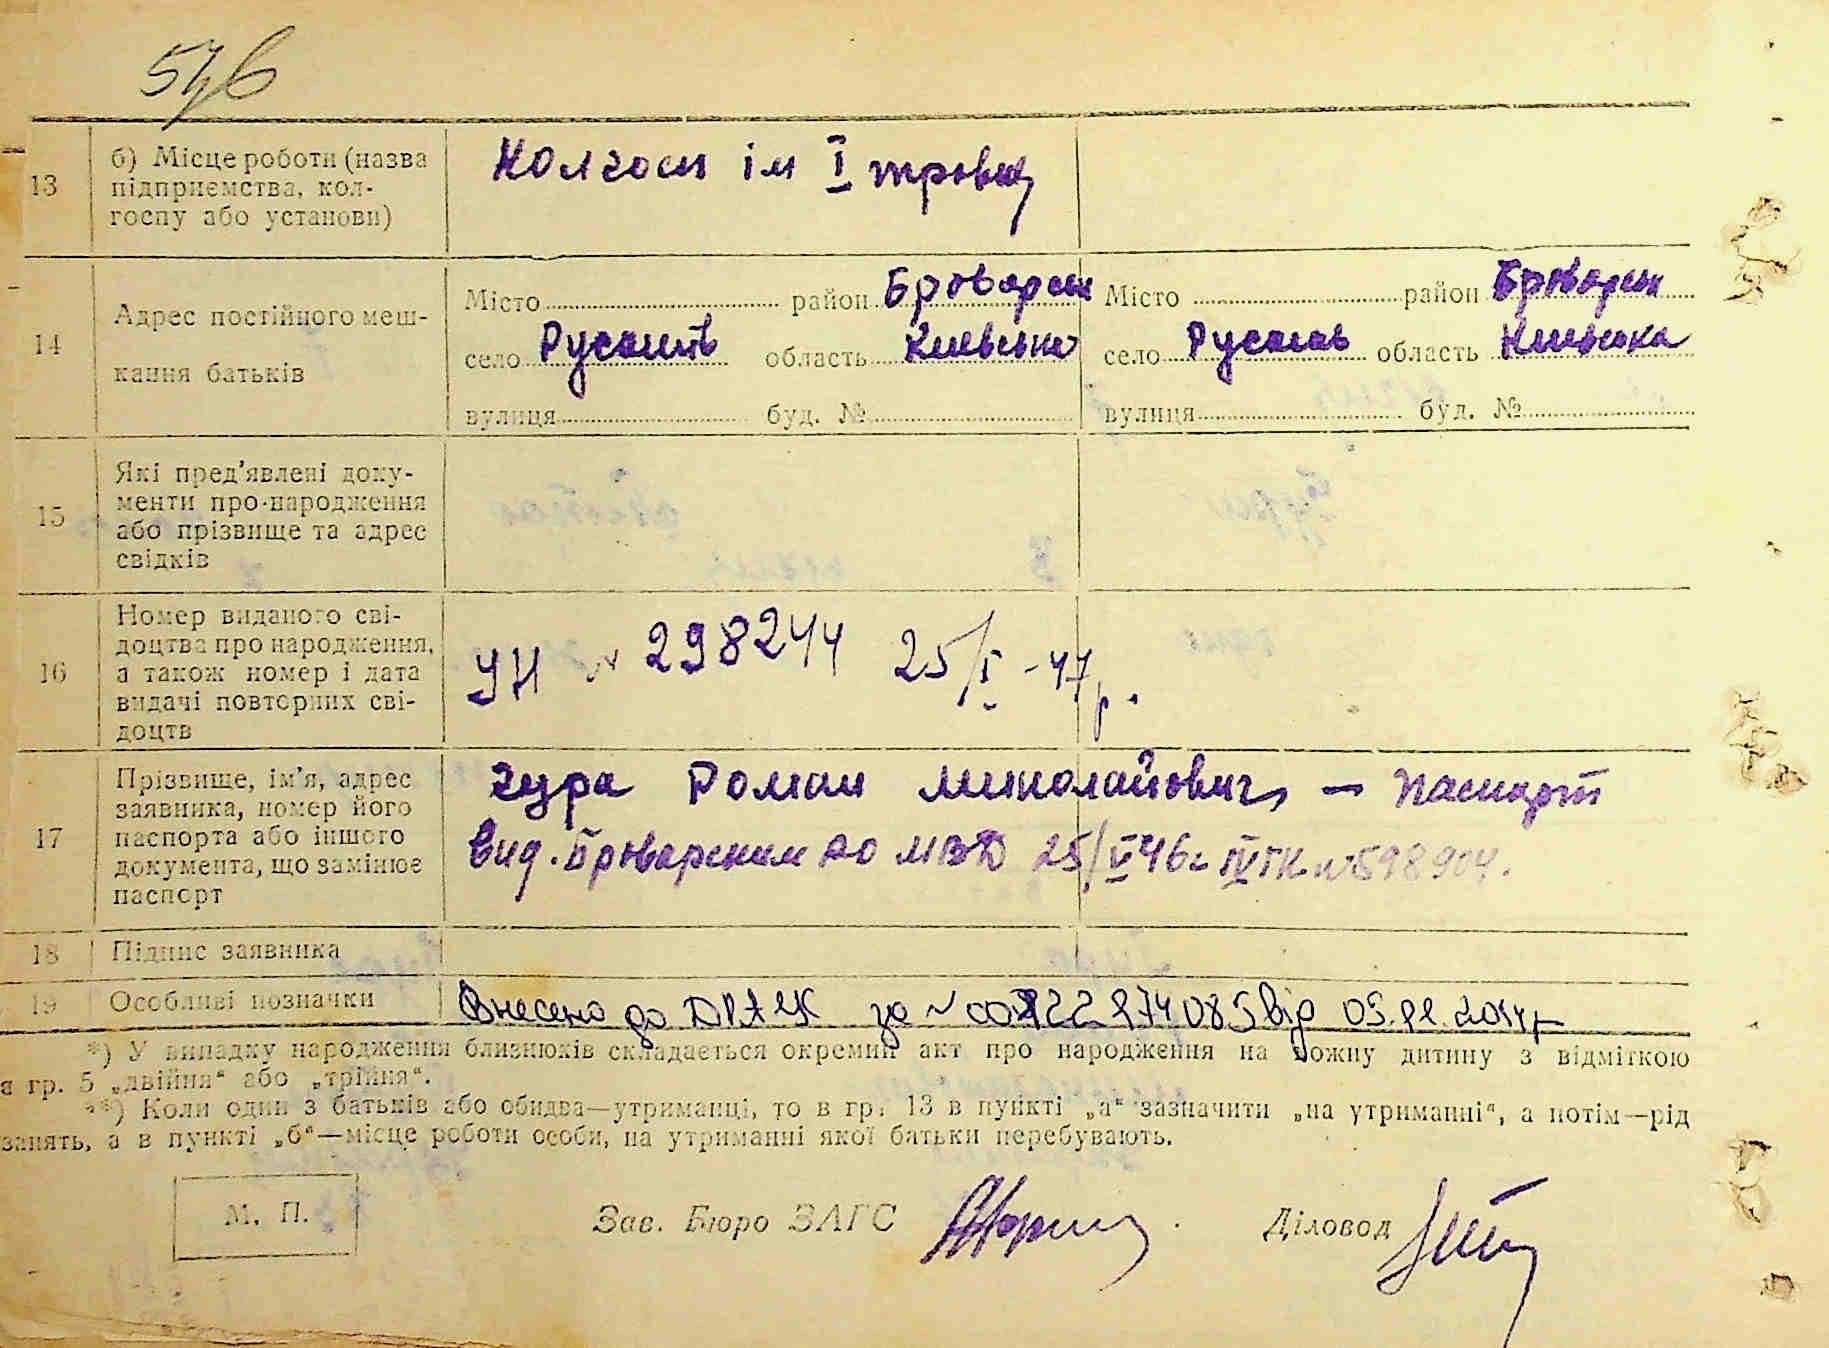 546
13 б) Місце роботи (назва
підприємства, кол-
госпу або установи)
Колгосп ім І травня
14 Адрес постійного меш-
кання батьків
Місто район Броварськ Місто район Броварськ
село Русанів область Київська село Русанів область Київська
вулиця буд. № вулиця буд. №
15 Які пред'явлені доку-
менти про народження
або прізвище та адрес
свідків
16 Номер виданого сві-
доцтва про народження,
а також номер і дата
видачі повторних сві-
доцтв
УН № 298244 25/І-47р.
17 Прізвище, ім'я, адрес
заявника, номер його
паспорта або іншого
документа, що замінює
паспорт
Роман Миколайович — паспорт
Вид. Броварским РО МВД 25/V 46г IV ГК № 598904.
18 Підпис заявника
19 Особливі позначки
Внесено до ДРАЦС за № від
*) У випадку народження близнюків складається окремий акт про народження на кожну дитину з відміткою
в гр. 5 „двійня“ або „трійня“.
**) Коли один з батьків або обидва—утриманці, то в гр. 13 в пункті „а“ зазначити „на утриманні“, а потім—рід
занять, а в пункті „б“—місце роботи особи, на утриманні якої батьки перебувають.
М. П.
Зав. Бюро ЗАГС Діловод